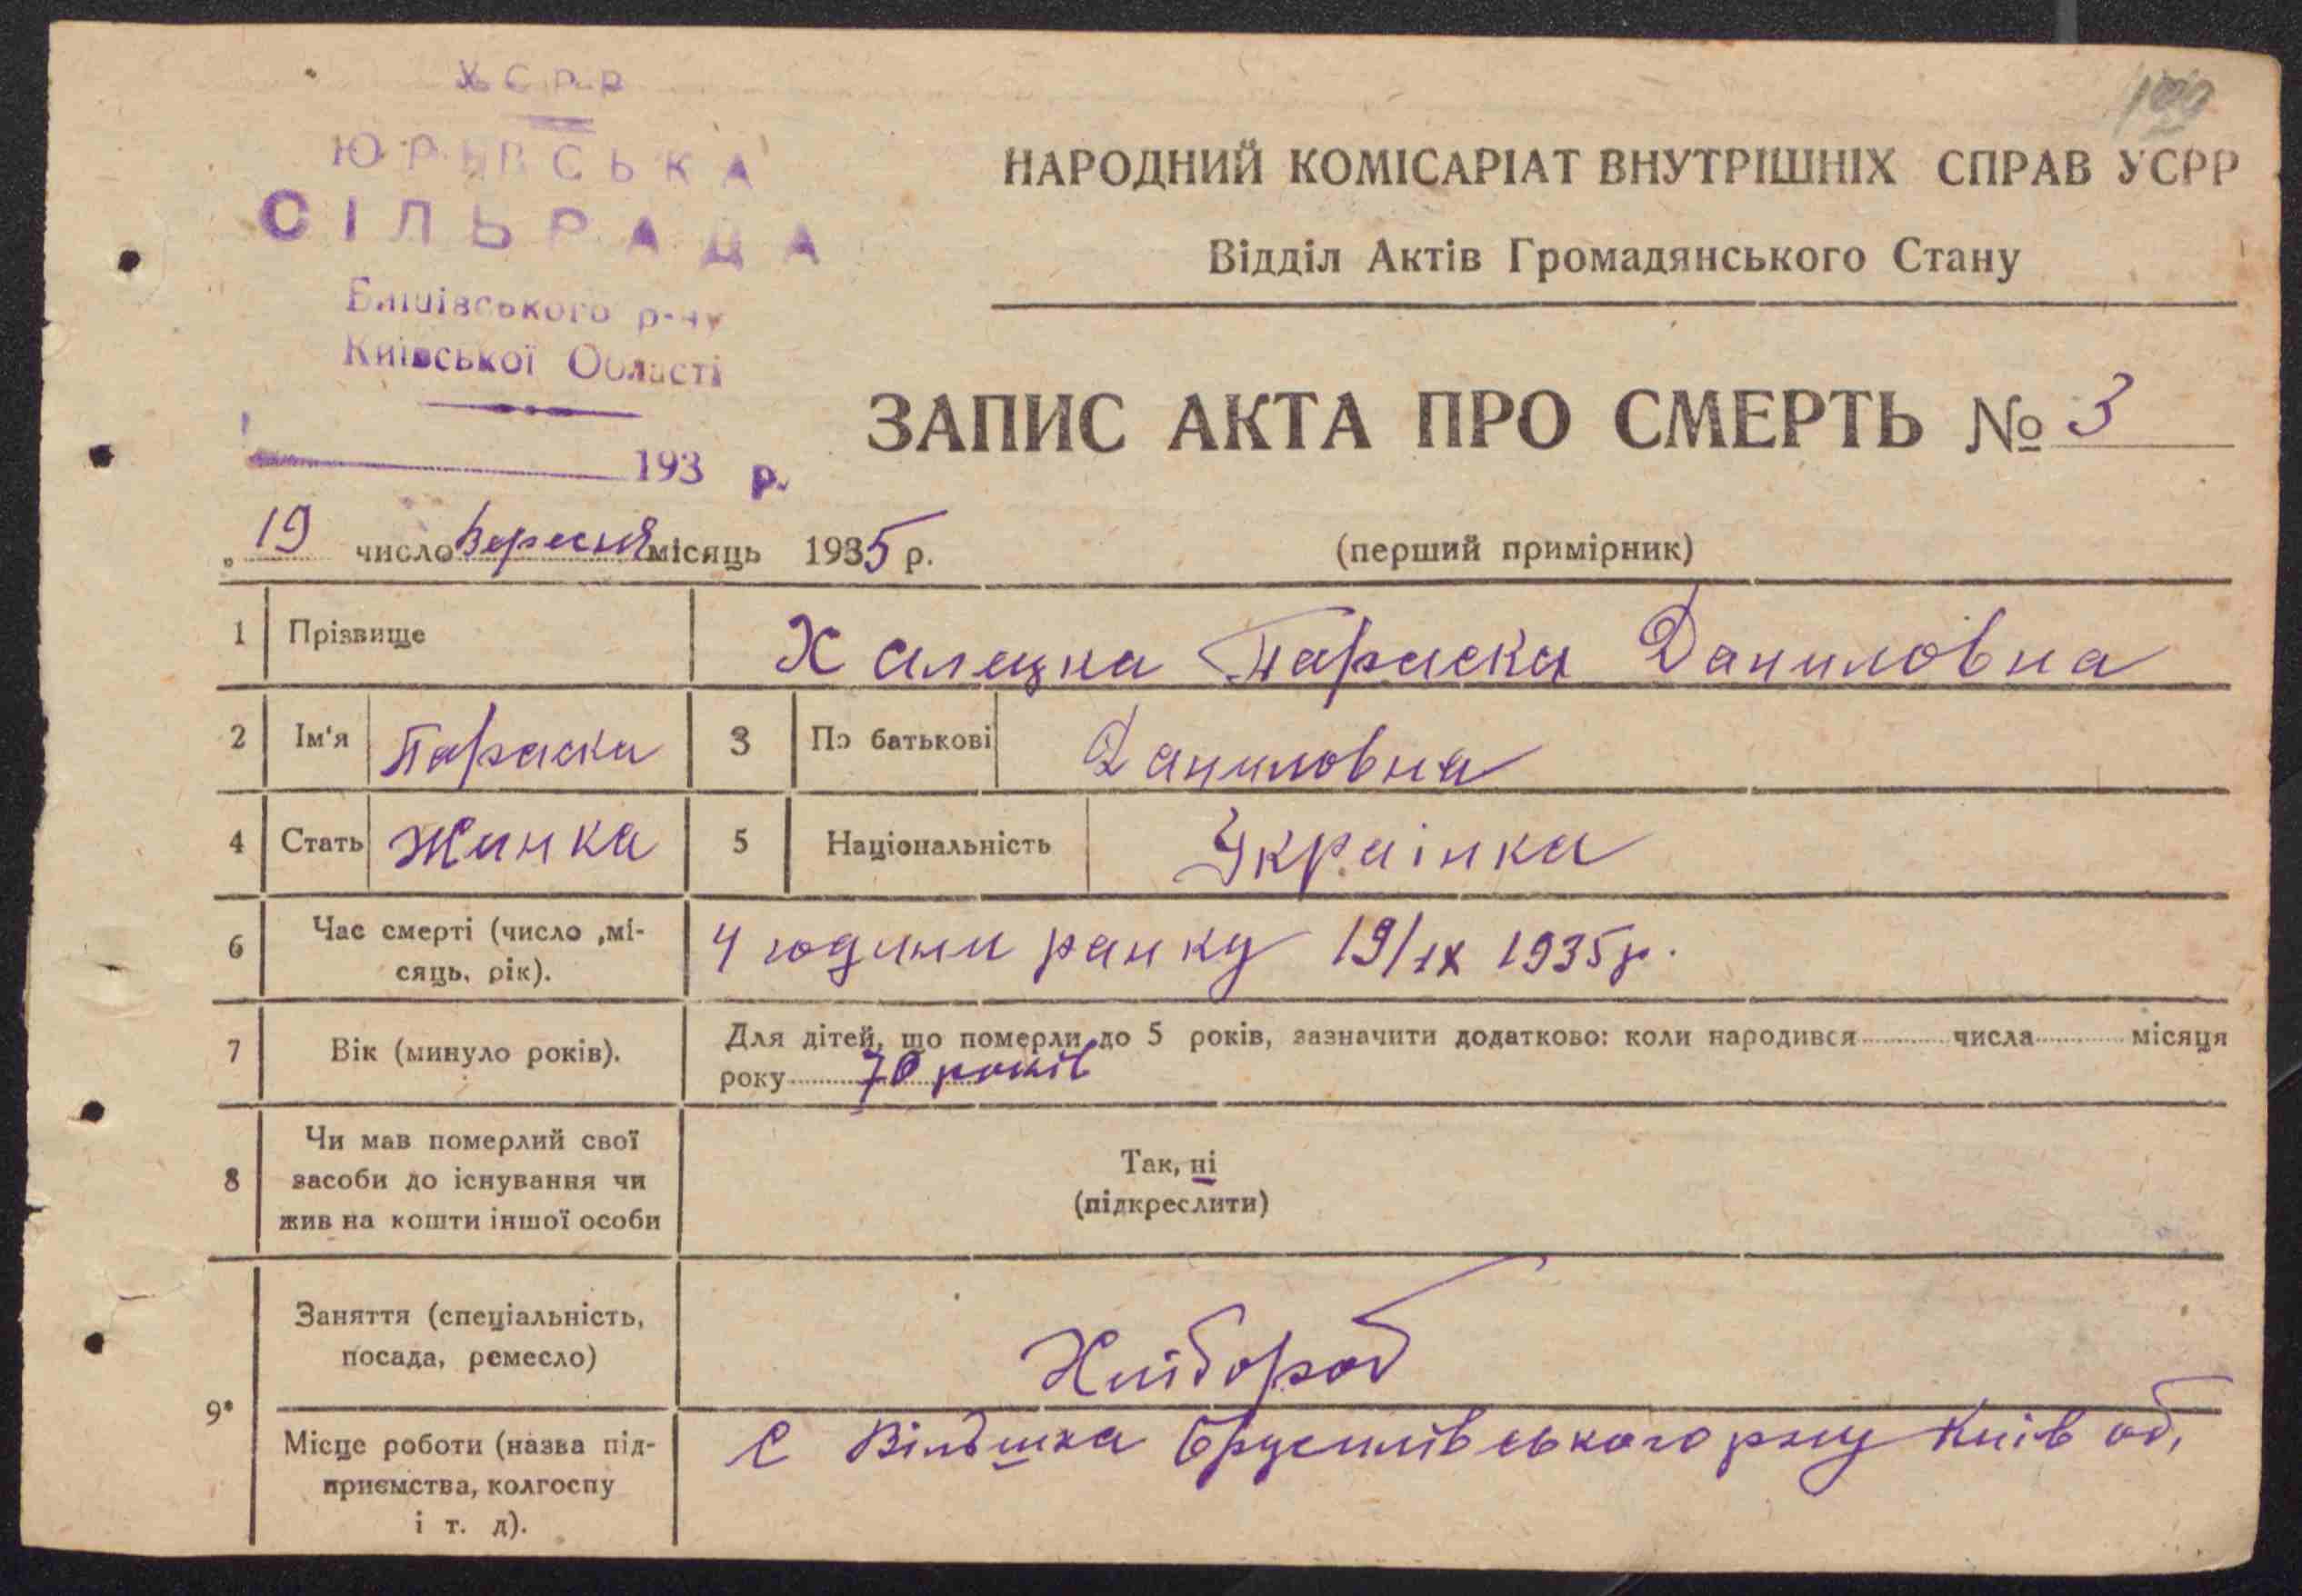 УСРР
ЮРІВСЬКА
СІЛЬРАДА
Київської Області
193 р.
НАРОДНИЙ КОМІСАРІАТ ВНУТРІШНІХ СПРАВ УСРР
Відділ Актів Громадянського Стану
ЗАПИС АКТА ПРО СМЕРТЬ № 3
„ 19 число Вересня місяць 1935 р.
(перший примірник)
1 Прізвище Халецка Параска Даниловна
2 Ім'я Параска 3 По батькові Даниловна
4 Стать Жинка 5 Національність Українка
6 Час смерті (число ,мі-
сяць, рік).
4 години ранку 19/ІХ 1935 р.
7 Вік (минуло років).
Для дітей, що померли до 5 років, зазначити додатково: коли народився числа місяця
року 70 років
8 Чи мав померлий свої
засоби до існування чи
жив на кошти іншої особи
Так, ні
(підкреслити)
9*
Заняття (спеціальність,
посада, ремесло)
Хлібороб
Місце роботи (назва під-
приємства, колгоспу
і т. д).
с Вільшка Брусилівського р-ну Київ об.